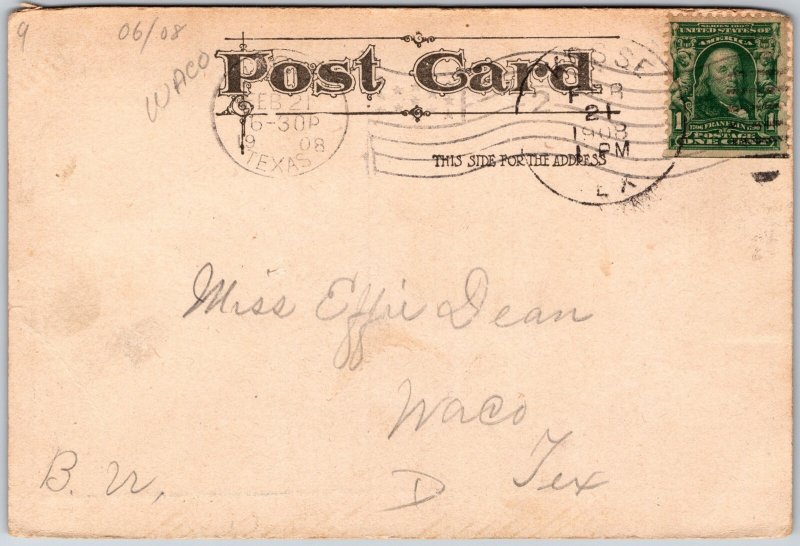 9
06/08
WACO
Post Card
THIS SIDE FOR THE ADDRESS
FEB 21
6-30P
19 08
TEXAS
21
1908
1 PM
SERIES 1902
UNITED STATES OF
AMERICA
1 1
1706 FRANKLIN 1790
POSTAGE
ONE CENT
Miss Effie Dean
Waco
Tex
B. U.
D